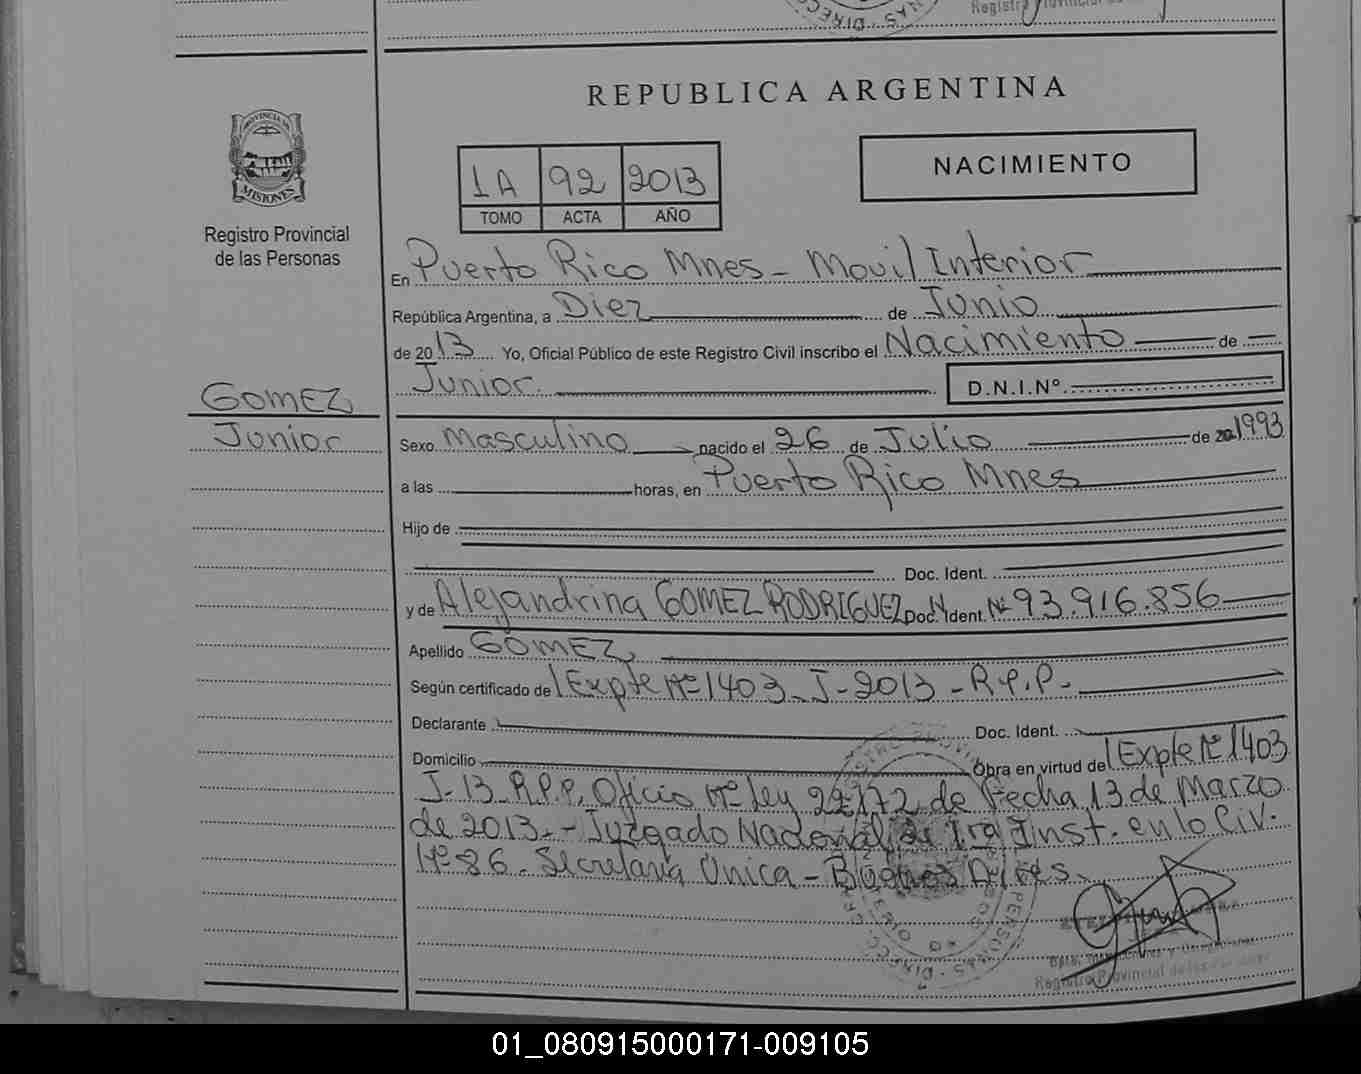 REPUBLICA ARGENTINA
PROVINCIA DE
MISIONES
Registro Provincial
de las Personas
1A 92 2013
TOMO ACTA AÑO
NACIMIENTO
En Puerto Rico Mnes - Movil Interior
República Argentina, a Diez de Junio
de 2013 Yo, Oficial Público de este Registro Civil inscribo el Nacimiento de
Junior D.N.I.Nº
GOMEZ
Junior
Sexo Masculino nacido el 26 de Julio de 1993
a las horas, en Puerto Rico Mnes
Hijo de
Doc. Ident.
y de Alejandrina GOMEZ RODRIGUEZ Doc. Ident. Nº 93.916.856
Apellido GOMEZ
Según certificado de Expte Nº 1403 - J - 2013 - R.P.P.-
Declarante Doc. Ident.
Domicilio Obra en virtud de Expte Nº 1403
J-13 R.P.P. Oficio Nº Ley 22172 de Fecha 13 de Marzo
de 2013.- Juzgado Nacional de 1ra Inst. en lo Civ.
Nº 86. Secretaría Unica - Buenos Aires.
Registro Provincial de las Personas
01_080915000171-009105